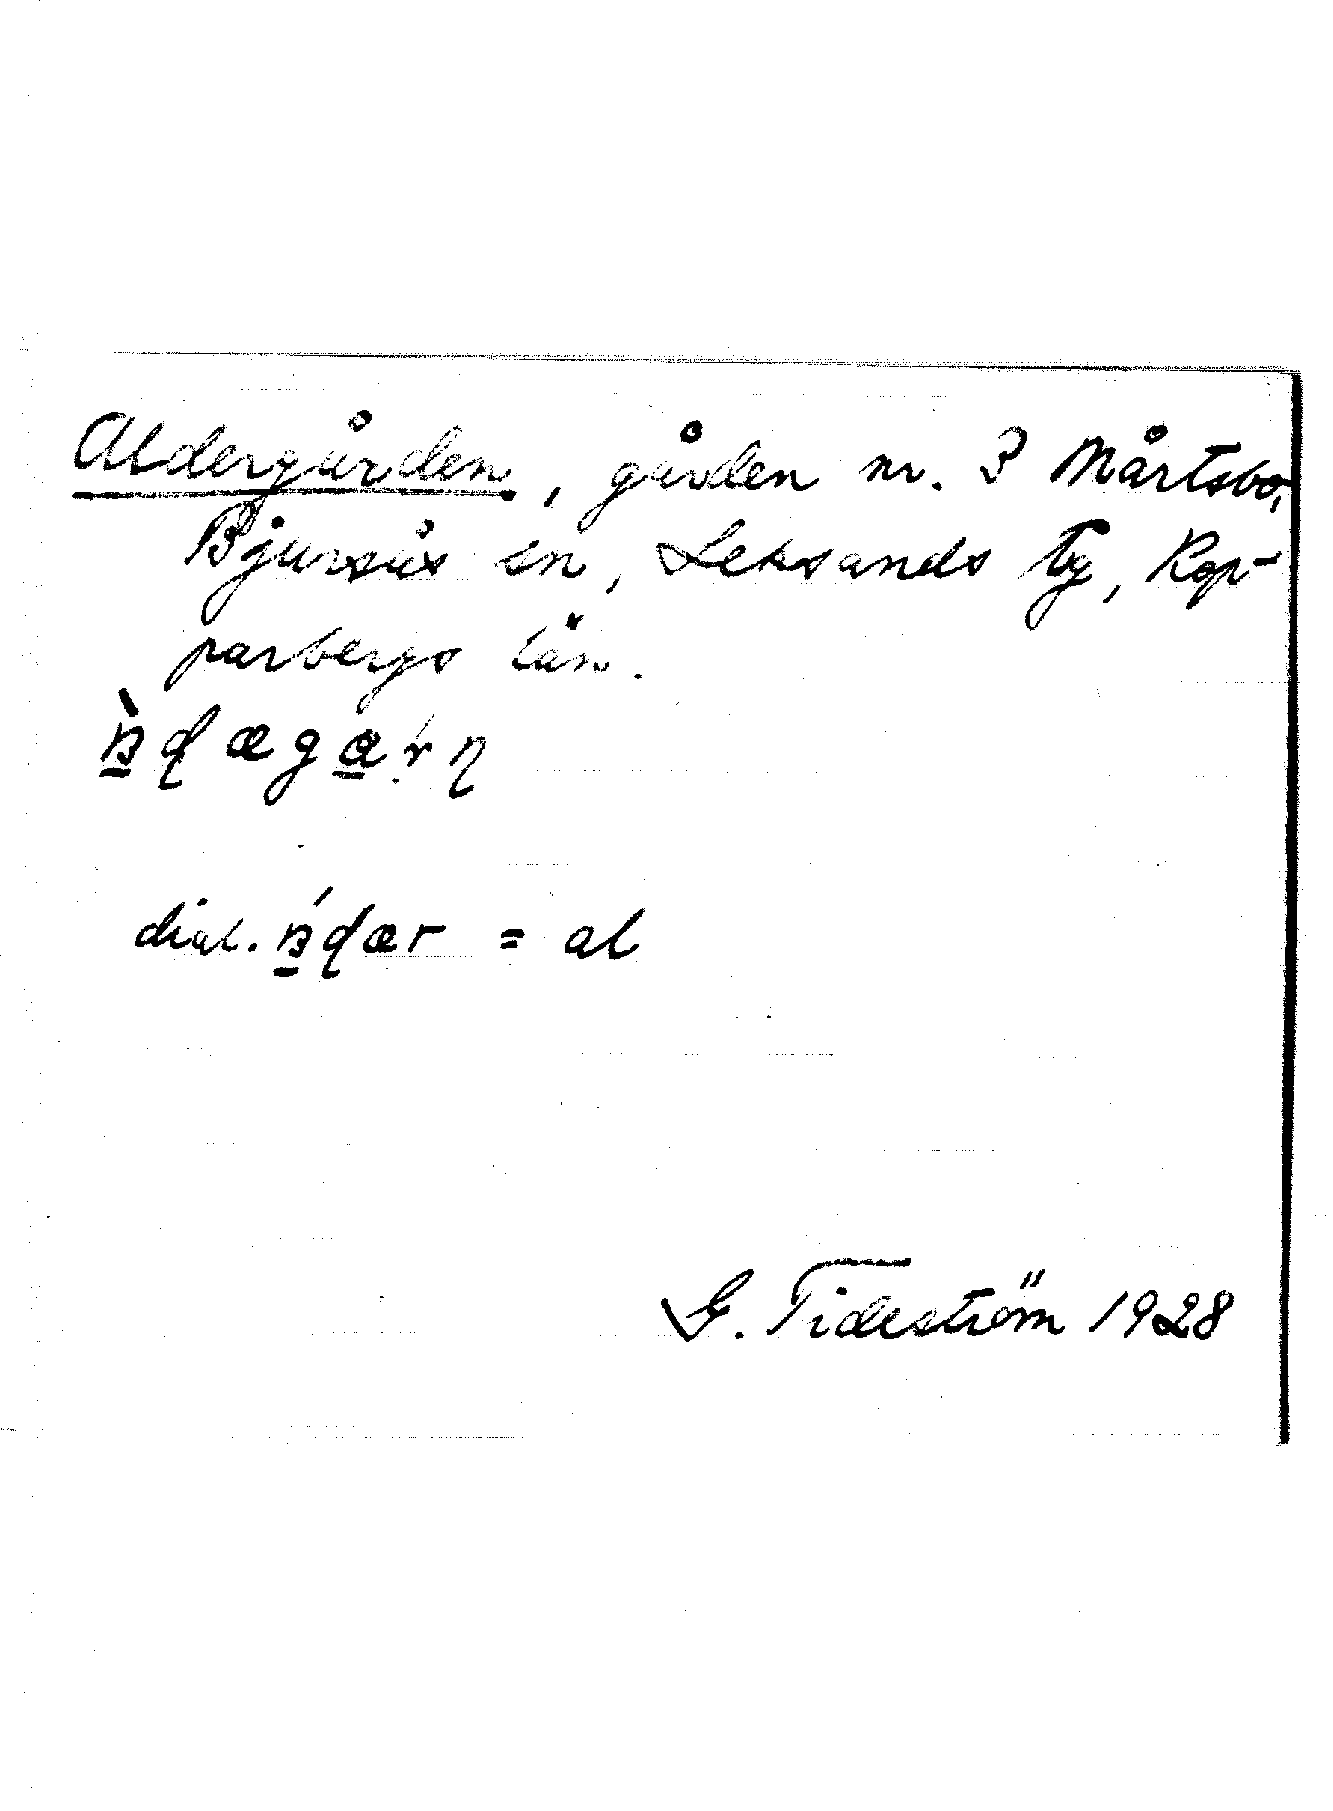 Aldergården, gården nr. 3 Mårtsbo,
Bjursås sn, Leksands tg, Kop-
parbergs län.
dial. = al
G. Tideström 1928